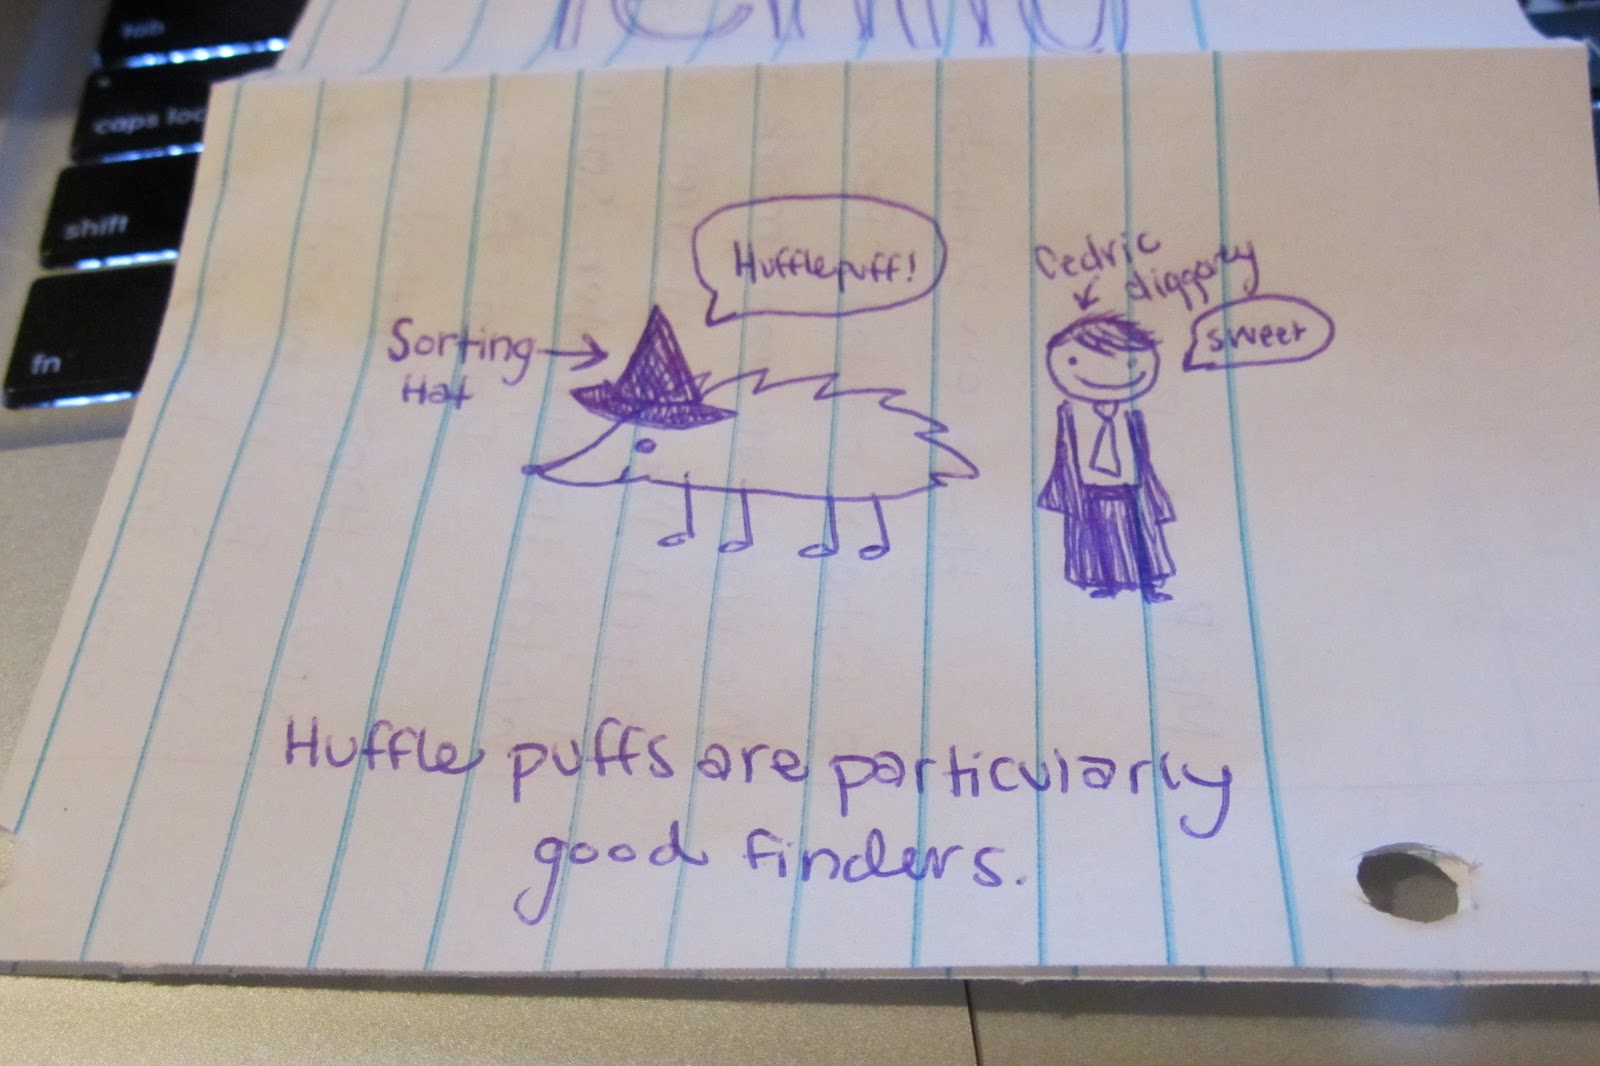 tab
caps loc
shift
fn
Hufflepuff!
Cedric
diggory
sweet
Sorting
Hat
Huffle puffs are particularly
good finders.